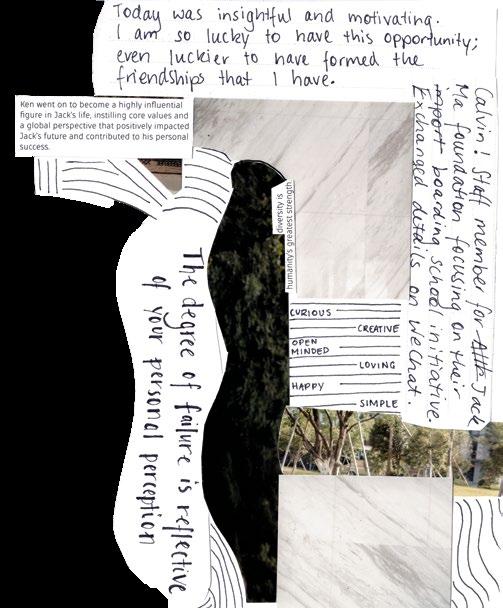 Today was insightful and motivating.
I am so lucky to have this opportunity;
even luckier to have formed the
friendships that I have.
Ken went on to become a highly influential
figure in Jack's life, instilling core values and
a global perspective that positively impacted
Jack's future and contributed to his personal
success.
Calvin! Staff member for Jack
Ma foundation focusing on their
boarding school initiative.
Exchanged details on WeChat.
diversity is
humanity's greatest strength
CURIOUS
CREATIVE
OPEN
MINDED
LOVING
HAPPY
SIMPLE
The degree of failure is reflective
of your personal perception